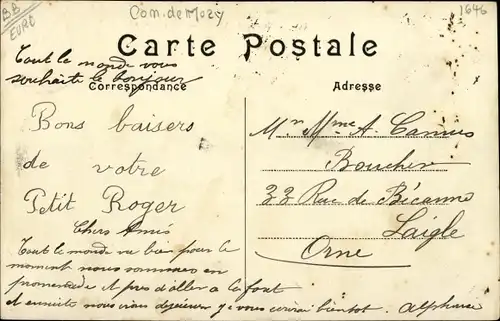 BB
EURE
Con. de Mozy
1646
Carte Postale
Tout le monde vous
souhaite le bonjour
Correspondance
Bons baisers
de votre
Petit Roger
Chers Amis
Tout le monde va bien pour le
moment nous sommes en
promenade et près d'aller à la
et ensuite nous irons déjeuner je vous écrirai bientôt. Alphonse
Adresse
Mr Mme A. Camus
Boucher
33 Rue de Bécanne
Laigle
Orne